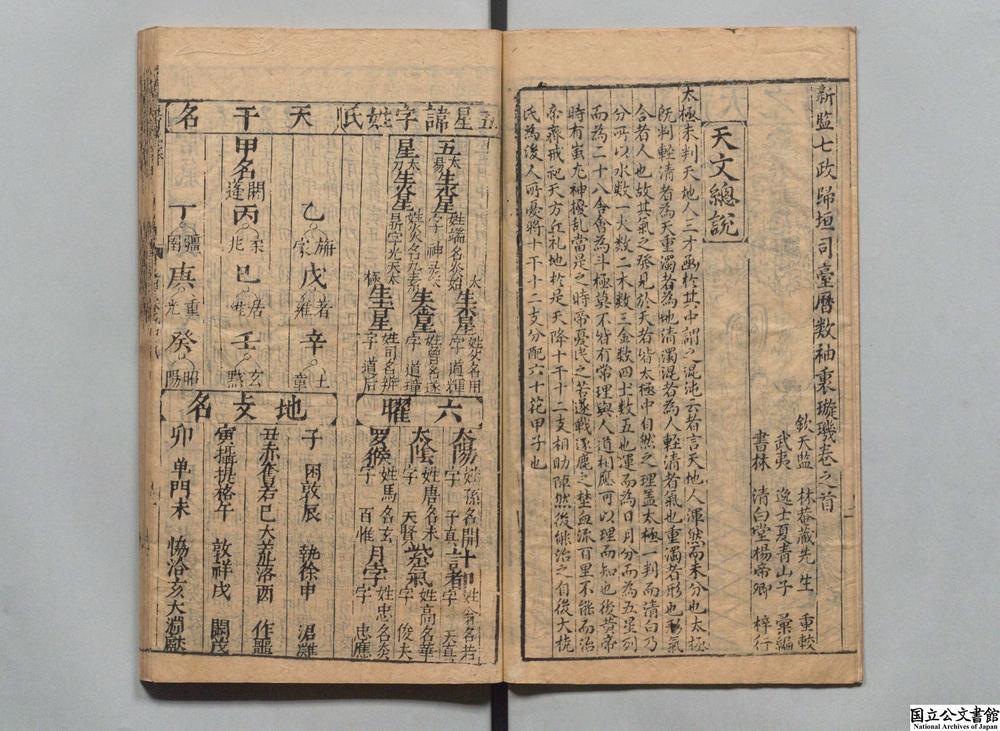 新監七政歸垣司臺曆数袖裏璇璣卷之首
欽天監 林菴藏先生 重較
武夷 逸士夏青山子 彙編
書林 清白堂楊帝卿 梓行
天文總說
太極未判天地人三才函於其中謂之混沌云者言天地人渾然而未分也太極
既判輕清者為天重濁者為地清濁混者為人輕清者氣也重濁者形也形氣
合者人也故其氣之發見於天者皆太極中自然之理盖太極一判而清白乃
分所以水数一火数二木数三金数四土数五也運而為日月分而為五星列
而為二十八舍會為斗極莫不皆有常理與人道相應可以理而知也後黃帝
時有蚩尤神擾乱當是之時帝憂民之苦遂戰逐鹿之埜血流百里不能而治
帝齋戒祀天方丘礼地於是天降十干十二支相助除然後能治之自後大撓
氏為後人所憂將十干十二支分配六十花甲子也
五星諱字姓氏
天干名
甲名閼逢
乙旃蒙
丙柔兆
丁彊圉
戊著雍
己居
庚重光
辛
壬玄黓
癸昭陽
六曜
太陽 姓孫名開 字子真
太陰 姓唐名未 字天賢
紫氣 姓高名華 字俊夫
羅睺 姓馬名玄 字百惟
月孛 姓忠名炎 字忠應
地支名
子困敦 辰執徐 申涒灘
丑赤奮若 巳大荒洛 酉作噩
寅攝提格 午敦祥 戌閹茂
卯单門 未恊洽 亥大淵獻
国立公文書館
National Archives of Japan